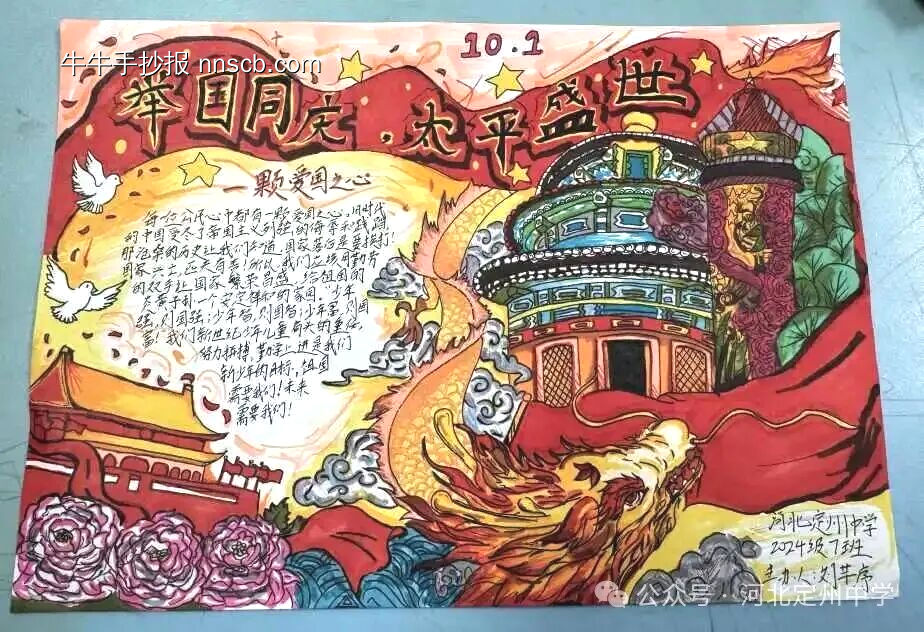 牛牛手抄报 nnscb.com
10.1
举国同庆,太平盛世
一颗爱国之心
每位公民心中都有一颗爱国之心。旧时代
的中国受尽了帝国主义列强的侮辱和践踏
那沧桑的历史让我们知道,国家落后是要挨打!
国家兴亡,匹夫有责!所以,我们应该用勤劳
的双手让国家繁荣昌盛,给祖国的
一个安定祥和的家园。少年
强,则国强;少年智,则国智;少年富,则国
富!我们新世纪少年儿童有大的重任。
努力拼搏,勤学上进是我们
新少年的目标,祖国
需要我们!未来
需要我们!
河北定州中学
2024级7班
主办人:刘芊
公众号 · 河北定州中学